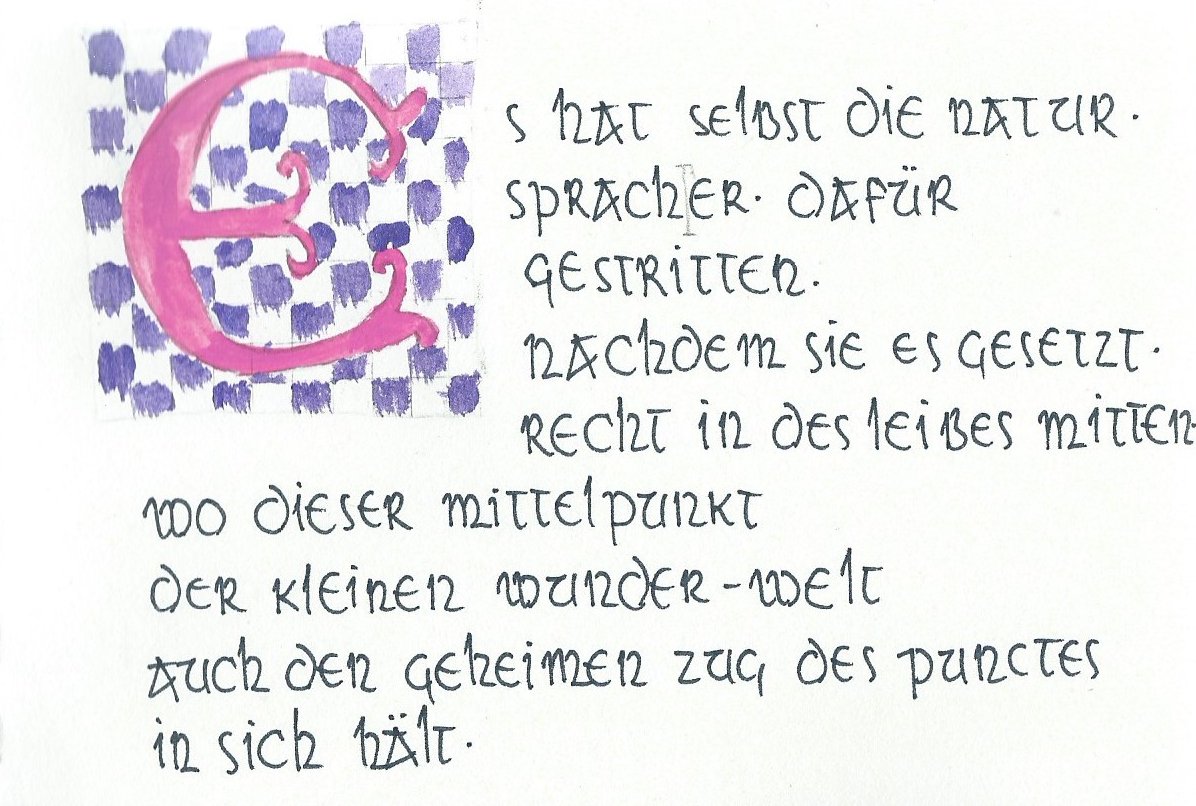 Es hat selbst die natur·
spracher· dafür
gestritten.
nachdem sie es gesetzt·
recht in des leibes mitten·
wo dieser mittelpunkt
der kleinen wunder-welt
auch den geheimen zug des punctes
in sich hält·